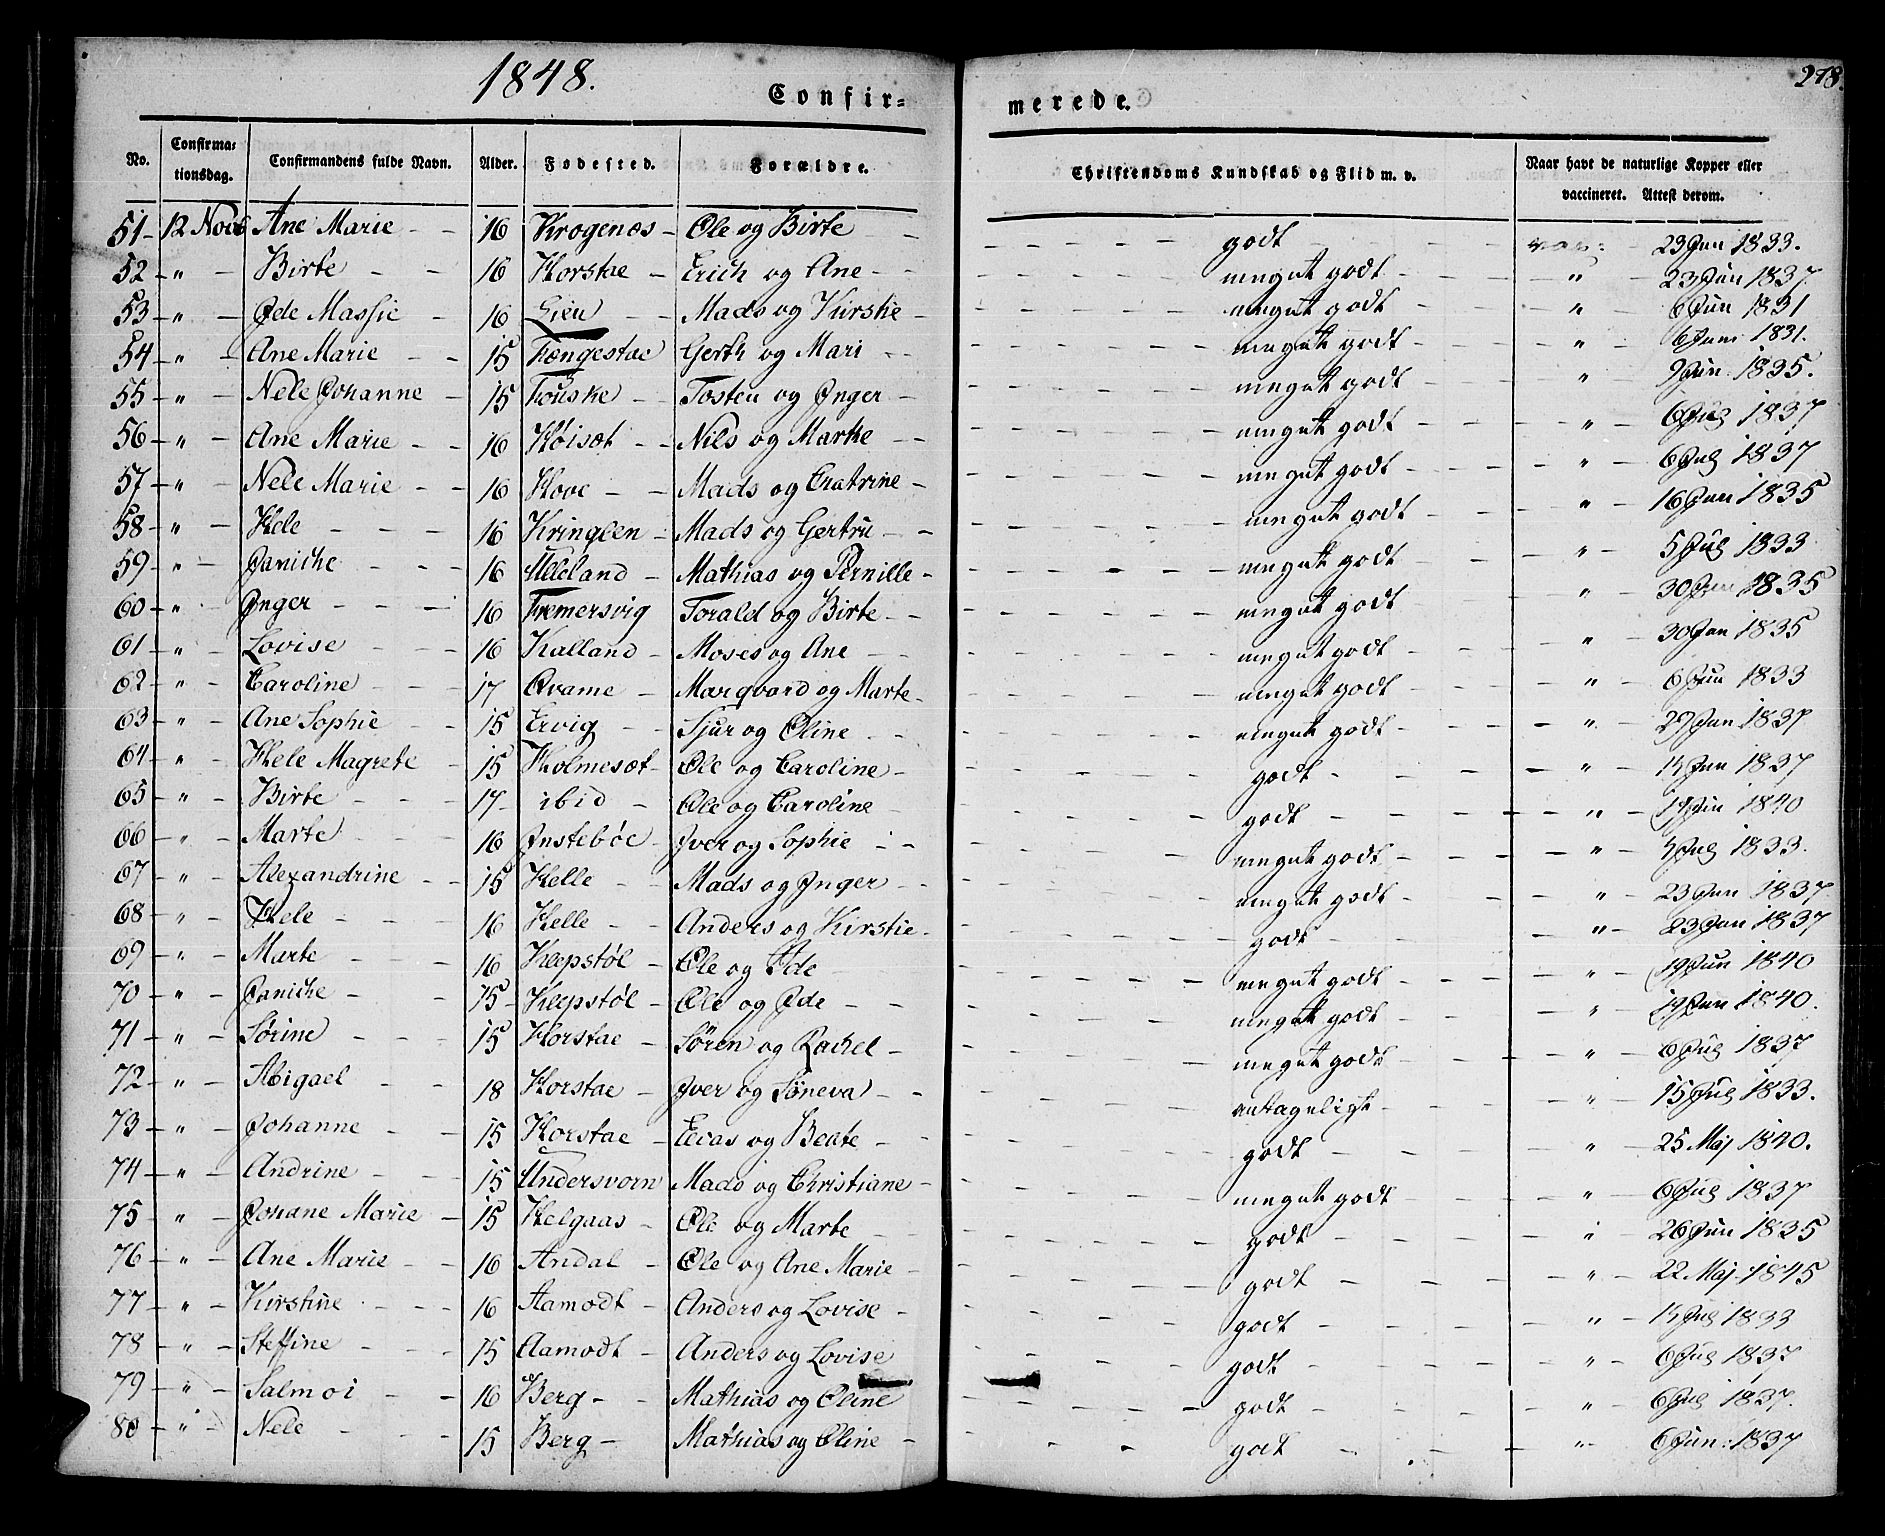 1848.
278.
Confir=
merede.
No. Confirma: tionsdag. Confirmandens fulde Navn. Alder. Fødested. Forældre. Christendoms Kundskab og Flid m. v. Naar havt de naturlige Kopper eller vaccineret. Attest derom.
51 - 12 Novb Ane Marie - - 16 Krogenæs - Ole og Birte - godt - vac: - 23 Jun 1833.
52 - " - Birte - - 16 Horstae - Erich og Ane - meget godt - " - 23 Jun 1837
53 - " - Jde Massie - 16 Lien - - Mads og Kirstie - meget godt - " - 6 Jun 1831
54 - " - Ane Marie - - 15 Fængestae Gerth og Mari - - meget godt - " - 6 Juni 1831.
55 - " - Nele Johanne - 15 Fouske - Tosten og Jnger - meget godt - " - 9 Jun: 1835.
56 - " - Ane Marie - - 16 Høisæt - - Nils og Marthe - - meget godt - " - 6 Jul 1837
57 - " - Nele Marie - - 16 Hove - - Mads og Chatrine - meget godt - " - 6 Jul 1837
58 - " - Hele - - - 16 Kringlen - Mads og Gertru - - meget godt - " - 16 Jun 1835
59 - " - Janiche - - - 16 Ueland - Mathias og Pernille - meget godt - " - 5 Jul 1833
60 - " - Jnger - - - 16 Fremersvig Torald og Birte - - meget godt - " - 30 Jun 1835
61 - " - Lovise - - - 16 Kalland - Moses og Ane - - meget godt - " - 30 Jan 1835
62 - " - Caroline - - - 17 Qvame - Marqvard og Marte - meget godt - " - 6 Jun 1833
63 - " - Ane Sophie - - 15 Ervig - - Sjur og Oline - - meget godt - " - 27 Jun 1837
64 - " - Hele Magrete - 15 Holmesæt - Ole og Caroline - godt - " - Jun 1837
65 - " - Birte - - - 17 - ibid - Ole og Caroline - godt - " - 19 Jun 1840
66 - " - Marte - - - 16 Jnstebøe - Jver og Sophie - - meget godt - " - Jul 1833.
67 - " - Alexandrine - - 15 Helle - - Mads og Jnger - - meget godt - " - 23 Jun 1837
68 - " - Hele - - - 16 Helle - Anders og Kirstie - godt - " - 23 Jun 1837
69 - " - Marte - - - 16 Klepstøl - Ole og Ade - meget godt - " - 19 Jun 1840
70 - " - Janiche - - 15 - Klepstøl - Ole og Jde - - meget godt - " - 19 Jun 1840.
71 - " - Sørine - - - 15 Horstae - Søren og Rachel - meget godt - " - 6 Jul 1837
72 - " - Abigael - - 18 Horstae - Jver og Søneva - - antageligt - " - 15 Jul 1833.
73 - " - Johanne - - 15 Horstae - Elias og Beate - - godt - " - 25 Maj 1840.
74 - " - Andrine - - 15 Undersvorn Mads og Christiane - meget godt - " - 6 Jul 1837
75 - " - Johane Marie - 15 Helgaas - Ole og Marte - godt - " - 26 Jun 1835
76 - " - Ane Marie - - 16 Andal - Ole og Ane Marie - godt - " - 22 Maj 1845
77 - " - Kirstine - - - 16 Aamodt - Anders og Lovise - godt - " - Jul 1833
78 - " - Steffine - - - 15 Aamodt - Anders og Lovise godt - " - 6 Jul 1837
79 - " - Salmoi - - 16 Berg - - Mathias og Oline godt - " - 6 Jul 1837.
80 - " - Nele - - - 15 Berg - Mathias og Oline - godt - " - 6 Jun: 1837